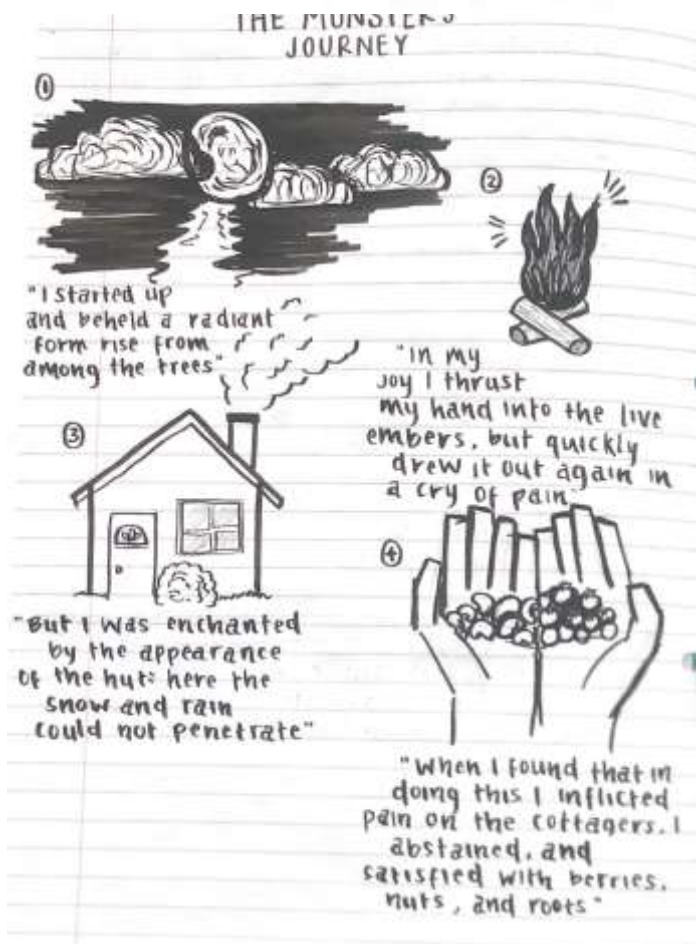 THE MONSTER'S
JOURNEY
①
"I started up
and beheld a radiant
form rise from
among the trees"
②
"In my
joy I thrust
my hand into the live
embers, but quickly
drew it out again in
a cry of pain"
③
"But I was enchanted
by the appearance
of the hut: here the
snow and rain
could not penetrate"
④
"When I found that in
doing this I inflicted
pain on the cottagers, I
abstained, and
satisfied with berries,
nuts, and roots"